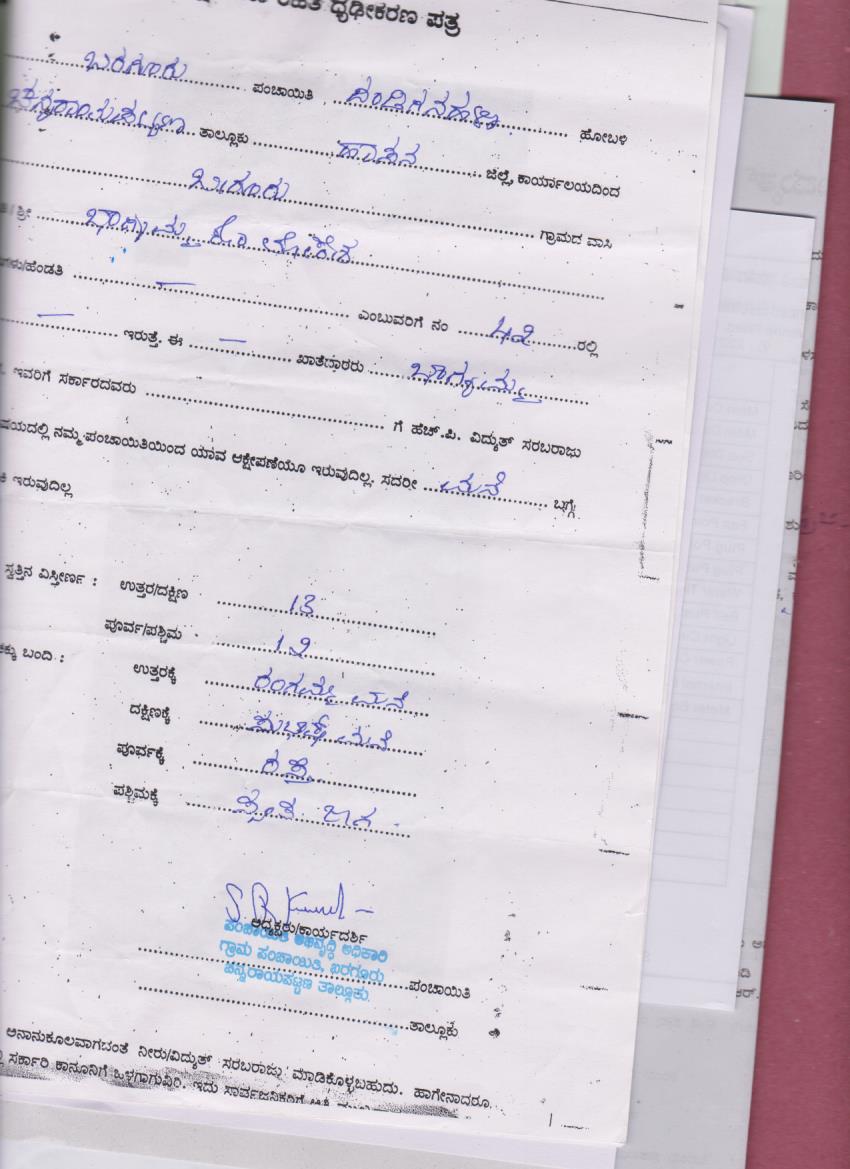 ರಹಿತ ಧೃಢೀಕರಣ ಪತ್ರ
ಬರಗೂರು ಪಂಚಾಯಿತಿ ದಂಡಿಗನಹಳ್ಳಿ ಹೋಬಳಿ
ಚನ್ನರಾಯಪಟ್ಟಣ ತಾಲ್ಲೂಕು ಹಾಸನ ಜಿಲ್ಲೆ, ಕಾರ್ಯಾಲಯದಿಂದ
ಬಿಗೂರು ಗ್ರಾಮದ ವಾಸಿ
ಶ್ರೀ ಭಾಗ್ಯಮ್ಮ ಕೋ ಲೋಕೇಶ
ಹೆಂಡತಿ — ಎಂಬುವರಿಗೆ ನಂ 42 ರಲ್ಲಿ
— ಇರುತ್ತೆ. ಈ — ಖಾತೆದಾರರು ಭಾಗ್ಯಮ್ಮ
ಇವರಿಗೆ ಸರ್ಕಾರದವರು ಗೆ ಹೆಚ್.ಪಿ. ವಿದ್ಯುತ್ ಸರಬರಾಜು
ಷಯದಲ್ಲಿ ನಮ್ಮ ಪಂಚಾಯಿತಿಯಿಂದ ಯಾವ ಆಕ್ಷೇಪಣೆಯೂ ಇರುವುದಿಲ್ಲ. ಸದರೀ ಮನೆ ಬಗ್ಗೆ
ಕಿ ಇರುವುದಿಲ್ಲ
ಸ್ವತ್ತಿನ ವಿಸ್ತೀರ್ಣ : ಉತ್ತರ/ದಕ್ಷಿಣ 13
ಪೂರ್ವ/ಪಶ್ಚಿಮ 12
ಕ್ಕು ಬಂದಿ : ಉತ್ತರಕ್ಕೆ ರಂಗಮ್ಮ ಮನೆ
ದಕ್ಷಿಣಕ್ಕೆ ಮನೆ
ಪೂರ್ವಕ್ಕೆ ರಸ್ತೆ
ಪಶ್ಚಿಮಕ್ಕೆ ಸ್ವಂತ ಜಾಗ
ಅಧ್ಯಕ್ಷರು/ಕಾರ್ಯದರ್ಶಿ
ಪಂಚಾಯಿತಿ ಅಭಿವೃದ್ಧಿ ಅಧಿಕಾರಿ
ಗ್ರಾಮ ಪಂಚಾಯಿತಿ, ಬರಗೂರು
ಪಂಚಾಯಿತಿ
ಚನ್ನರಾಯಪಟ್ಟಣ ತಾಲ್ಲೂಕು.
ತಾಲ್ಲೂಕು
ಅನಾನುಕೂಲವಾಗಬಂತೆ ನೀರು/ವಿದ್ಯುತ್ ಸರಬರಾಜು ಮಾಡಿಕೊಳ್ಳಬಹುದು. ಹಾಗೇನಾದರೂ
ಸರ್ಕಾರಿ ಕಾನೂನಿಗೆ ಒಳಗಾಗುವಿರಿ. ಇದು ಸಾರ್ವಜನಿಕರಿಗೆ